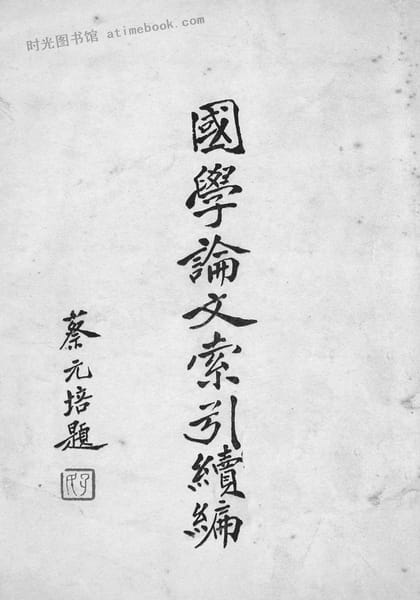 时光图书馆 atimebook.com
國學論文索引續編
蔡元培題